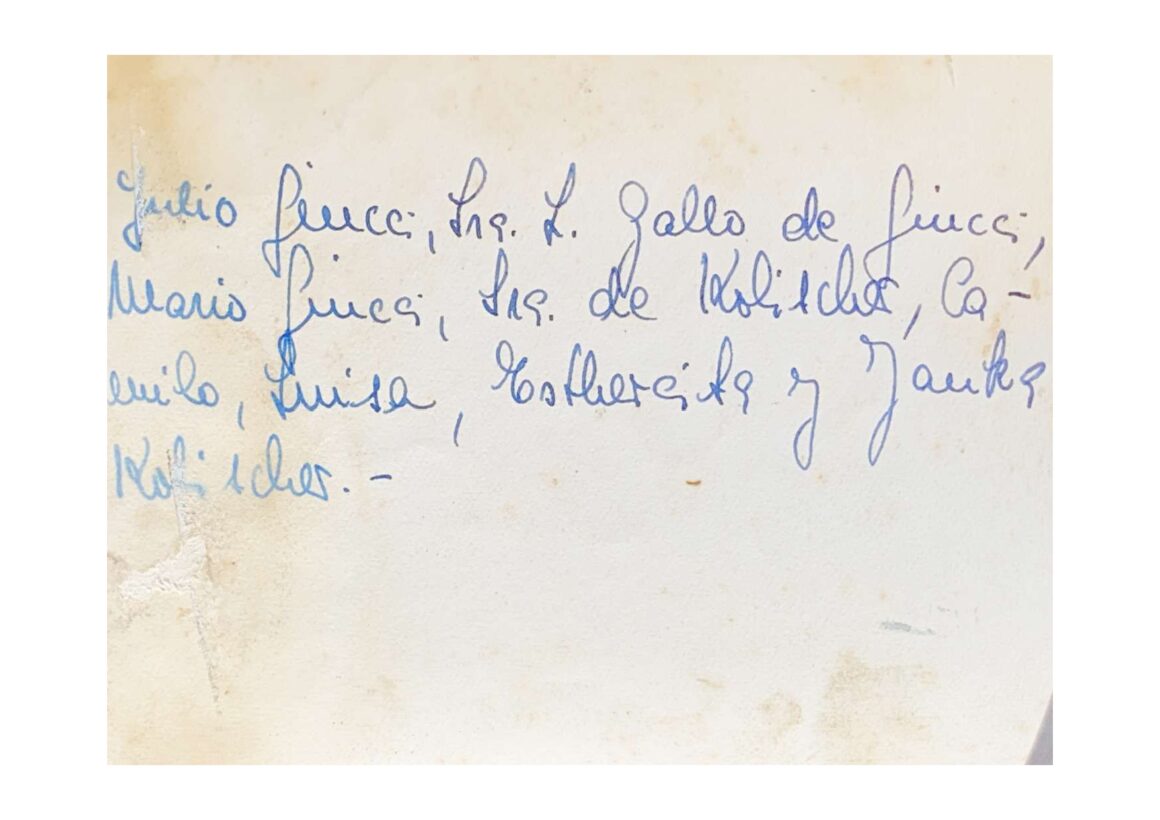 Julio Giucci, Sra. L. Gallo de Giucci,
Mario Giucci, Sra. de Kolischer, Ca-
milo, Luisa, Esthercita y Janka
Kolischer.-